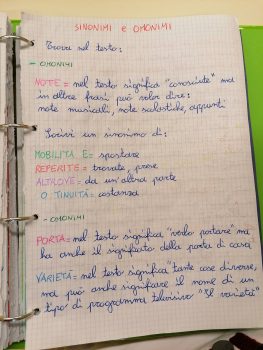 SINONIMI E OMONIMI
Trova nel testo:
- OMONIMI
NOTE = nel testo significa "conosciute" ma
in altre frasi può voler dire:
note musicali, note scolastiche, appunti
Scrivi un sinonimo di:
MOBILITA E = spostare
REPERITE = trovate, prese
ALTROVE = da un'altra parte
O TINUITÀ = costanza
- OMONIMI
PORTA = nel testo significa "verbo portare" ma
ha anche il significato della porta di casa
VARIETÀ = nel testo significa "tante cose diverse,
ma può anche significare il nome di un
tipo di programma televisivo "Il varietà"